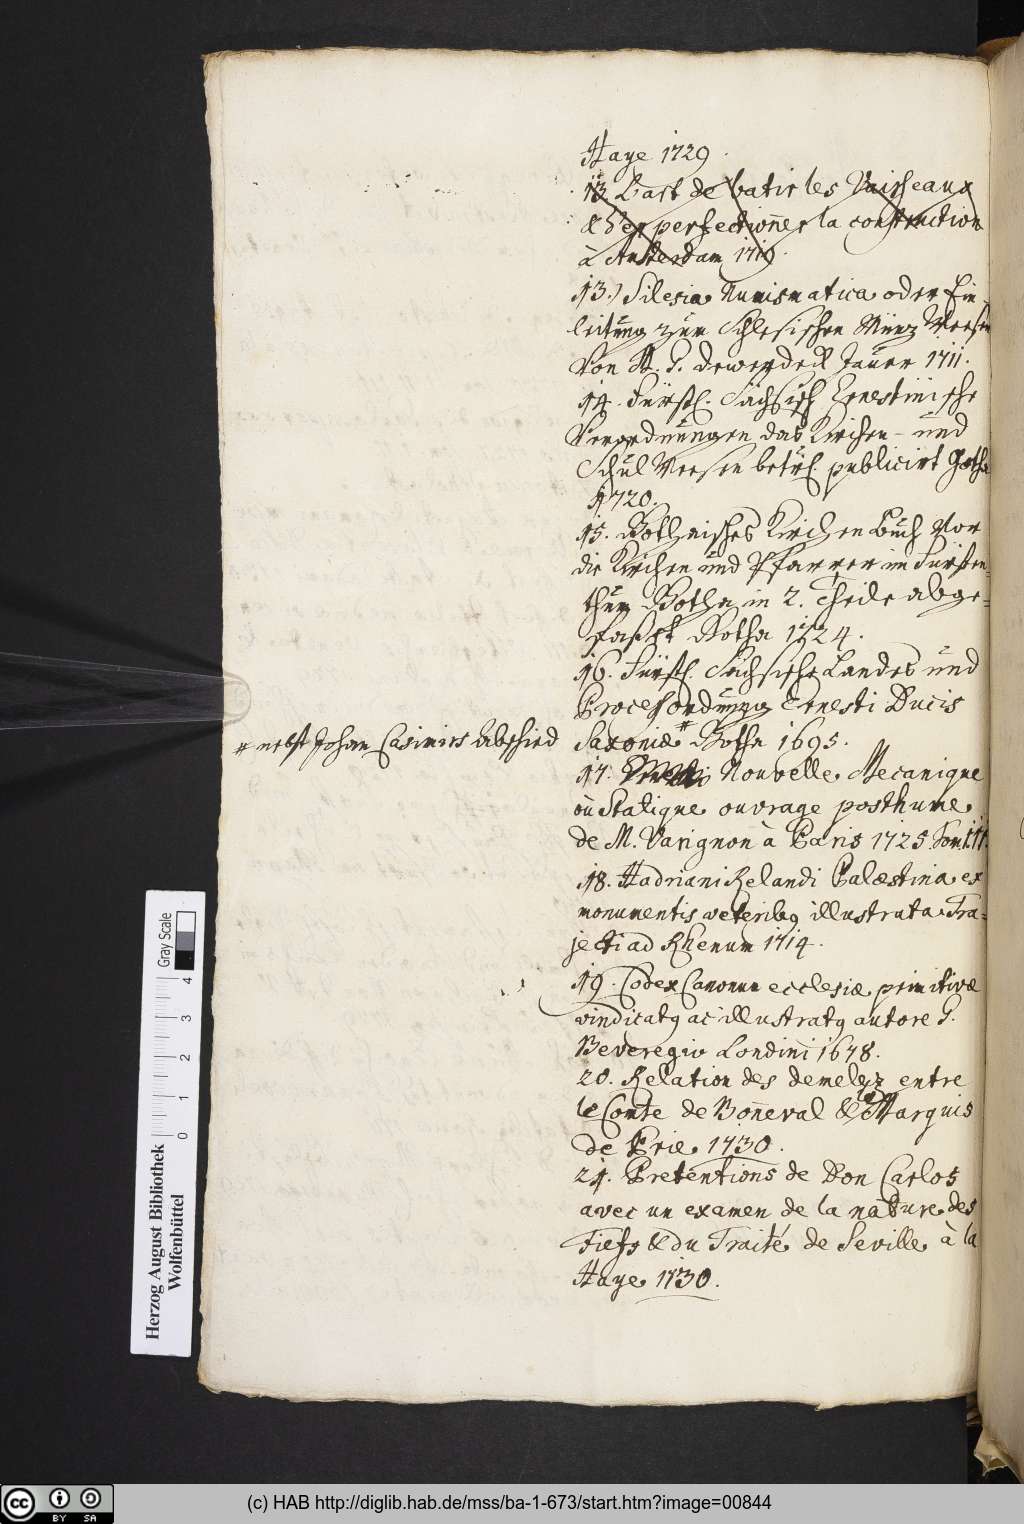 Haye 1729.
13. L'art de batir les Vaisseaux
& d'en perfectioñer la construction
à Amsterdam 1719.
13.) Silesia Numismatica oder Ein
leitung zur Schlesischen Müntz Wesen
Von H. G. Dewerdeck Jauer 1711.
14. Fürstl. Sächsisch Ernestinische
Verordnungen das Kirchen- und
Schul Weesen betrf. publicirt Gotha
1720.
15. Gothaisches Kirchen Buch Vor
die Kirchen und Pfarrer im Fürsten-
thum Gotha in 2. Theile abge=
fasst Gotha 1724.
16. Fürstl. Sächsische Landes und
Process ordnung Ernesti Ducis
# nebst Johan Casimirs Abschied
Saxoniæ # Gotha 1695.
17. Nouvelle Mecanique
ou Statique ouvrage posthume
de M. Varignon à Paris 1725. Tom. I. II.
18. Hadriani Relandi Palæstina ex
monumentis veteribq illustrata Tra=
jecti ad Rhenum 1714.
19. Codex Canonum ecclesiæ primitivæ
vindicatq ac illustratq autore G.
Beveregio Londini 1678.
20. Relation des demelez entre
le Comte de Boñeval & le Marquis
de Prié 1730.
21. Pretentions de Don Carlos
avec un examen de la nature des
Fiefs & du Traité de Seville à la
Haye 1730.
Herzog August Bibliothek
Wolfenbüttel
0 1 2 3 4
Gray Scale
cc BY SA
(c) HAB http://diglib.hab.de/mss/ba-1-673/start.htm?image=00844